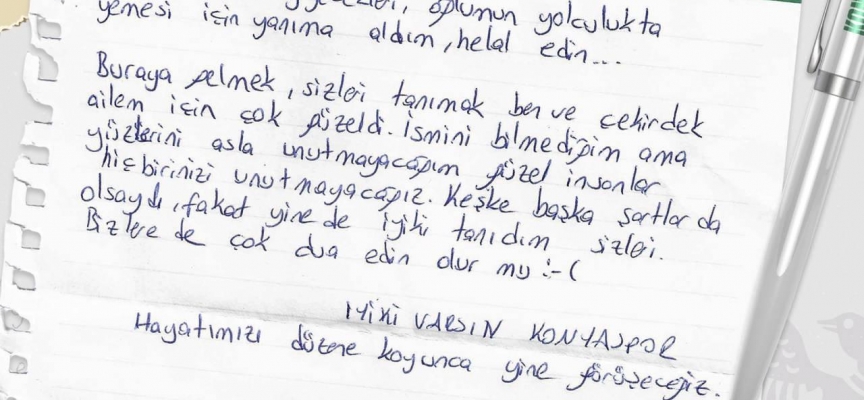 oğlumun yolculukta
yemesi için yanıma aldım, helal edin...
Buraya gelmek, sizleri tanımak ben ve çekirdek
ailem için çok güzeldi. İsmini bilmediğim ama
yüzlerini asla unutmayacağım güzel insanlar
hiçbirinizi unutmayacağız. Keşke başka şartlar da
olsaydı, fakat yine de iyiki tanıdım sizleri.
Bizlere de çok dua edin olur mu :-(
İYİKİ VARSIN KONYASPOR
Hayatımızı düzene koyunca yine görüşeceğiz.